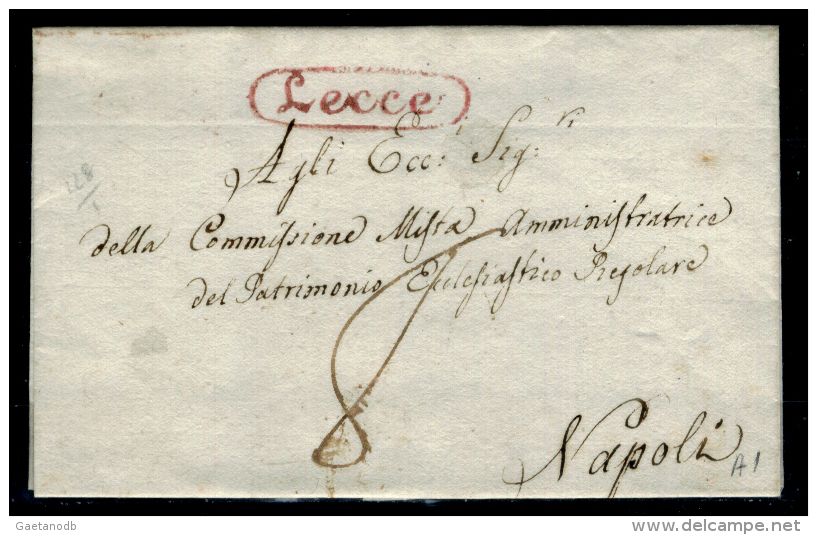 Lecce
Agli Ecc:i Sig:ri
della Commissione Mista Amministratrice
del Patrimonio Ecclesiastico Regolare
8
Napoli
A1
Gaetanodb
delcampe.net